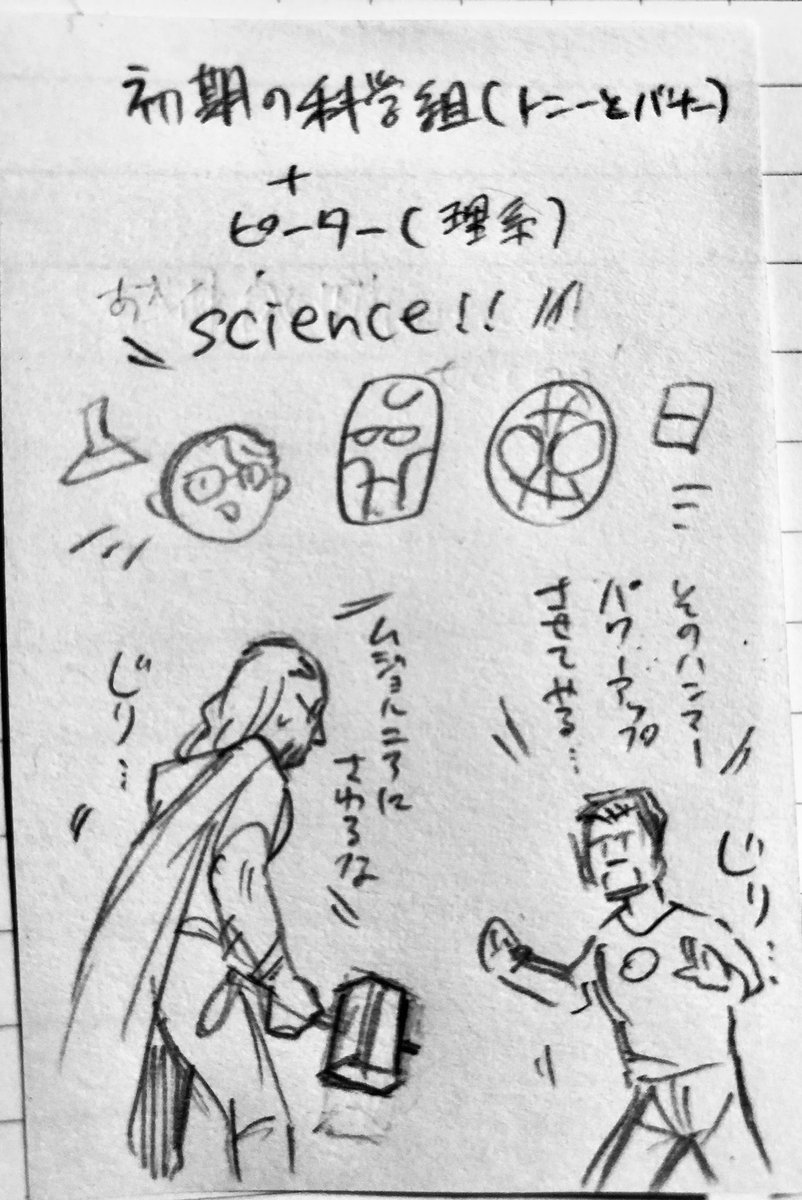 初期の科学組(トニーとバナー)
+
ピーター(理系)
science!!
そのハンマー
パワーアップ
させてみる…
ムジョルニアに
さわるな
じり…
じり…